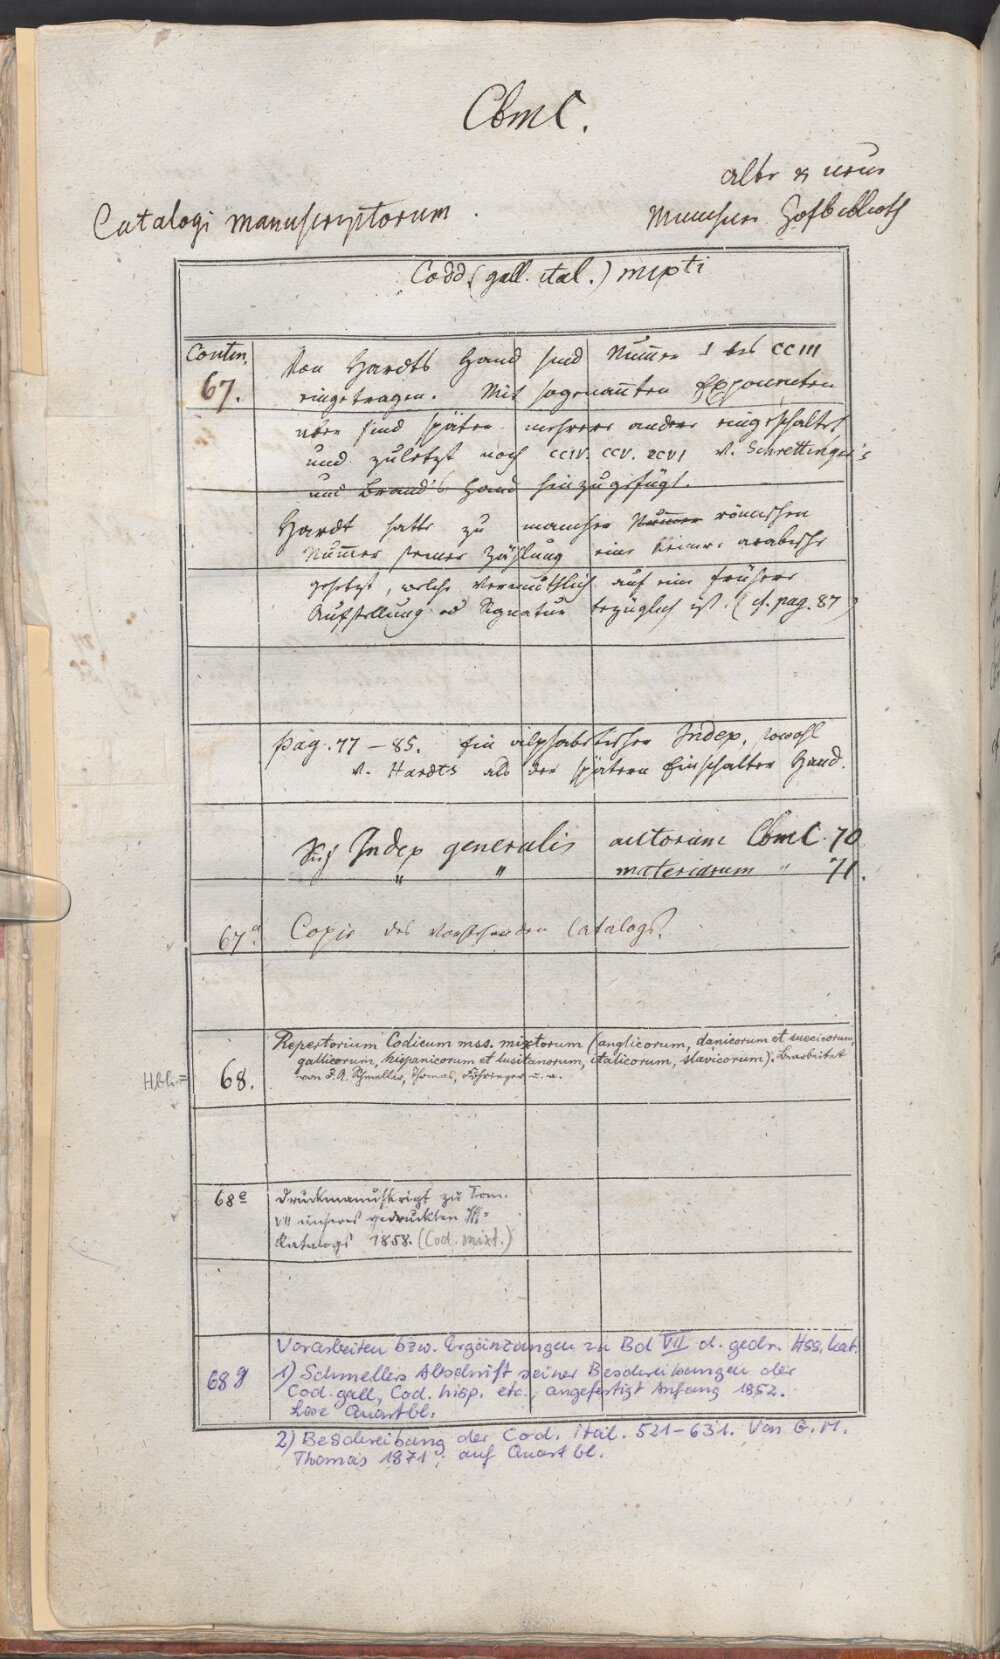 CbmC.
alte & neue
Catalogi manuscriptorum.
Münchner Hofbiblioth
Codd. (gall. ital.) mixti
Contin.
67.
Von Hardts Hand sind Nummer I bis CCIII
eingetragen. Mit sogenannten Exponenten
aber sind später mehrere andere eingeschaltet
und zuletzt noch CCIV. CCV. CCVI v. Schrettinger's
und Brand's Hand hinzugefügt.
Hardt hatte zu mancher Nummer römischen
Nummer seiner Zählung eine kleinere arabische
gesetzt, welche vermuthlich auf eine frühere
Aufstellung od Signatur bezüglich ist. (cf. pag. 87)
pag. 77 – 85. Ein alphabetischer Index, sowohl
v. Hardts als der spätern Einschalter Hand.
Sieh Index generalis autorum CbmC 70
" " materiarum " 71.
67a Copie des vorstehenden Catalogs.
Repertorium Codicum mss. mixtorum (anglicorum, danicorum et suecicorum,
gallicorum, hispanicorum et lusitanorum, italicorum, slavicorum); bearbeitet
Hbh= 68. von J. A. Schmeller, Thomas, Föhringer u. a.
68e Druckmanuskript zu Tom.
VII unseres gedruckten HSS-
Katalogs 1858. (Cod. mixt.)
Vorarbeiten bzw. Ergänzungen zu Bd VII d. gedr. Hss. kat.
68g 1) Schmellers Abschrift seiner Beschreibungen der
Cod. gall, Cod. hisp. etc., angefertigt Anfang 1852.
Lose Quartbl.
2) Beschreibung der Cod. ital. 521–631. Von G. M.
Thomas 1871; auf Quartbl.